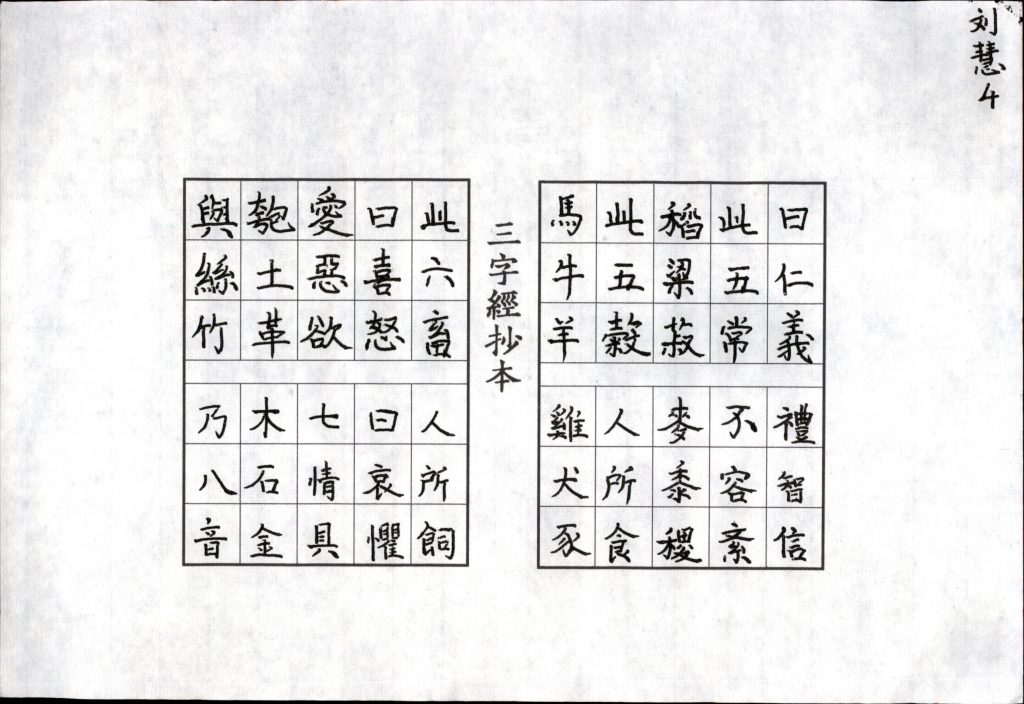 刘慧4
曰仁義禮智信
此五常不容紊
稻粱菽麥黍稷
此五穀人所食
馬牛羊雞犬豕
三字經抄本
此六畜人所飼
曰喜怒曰哀懼
愛惡欲七情具
匏土革木石金
與絲竹乃八音